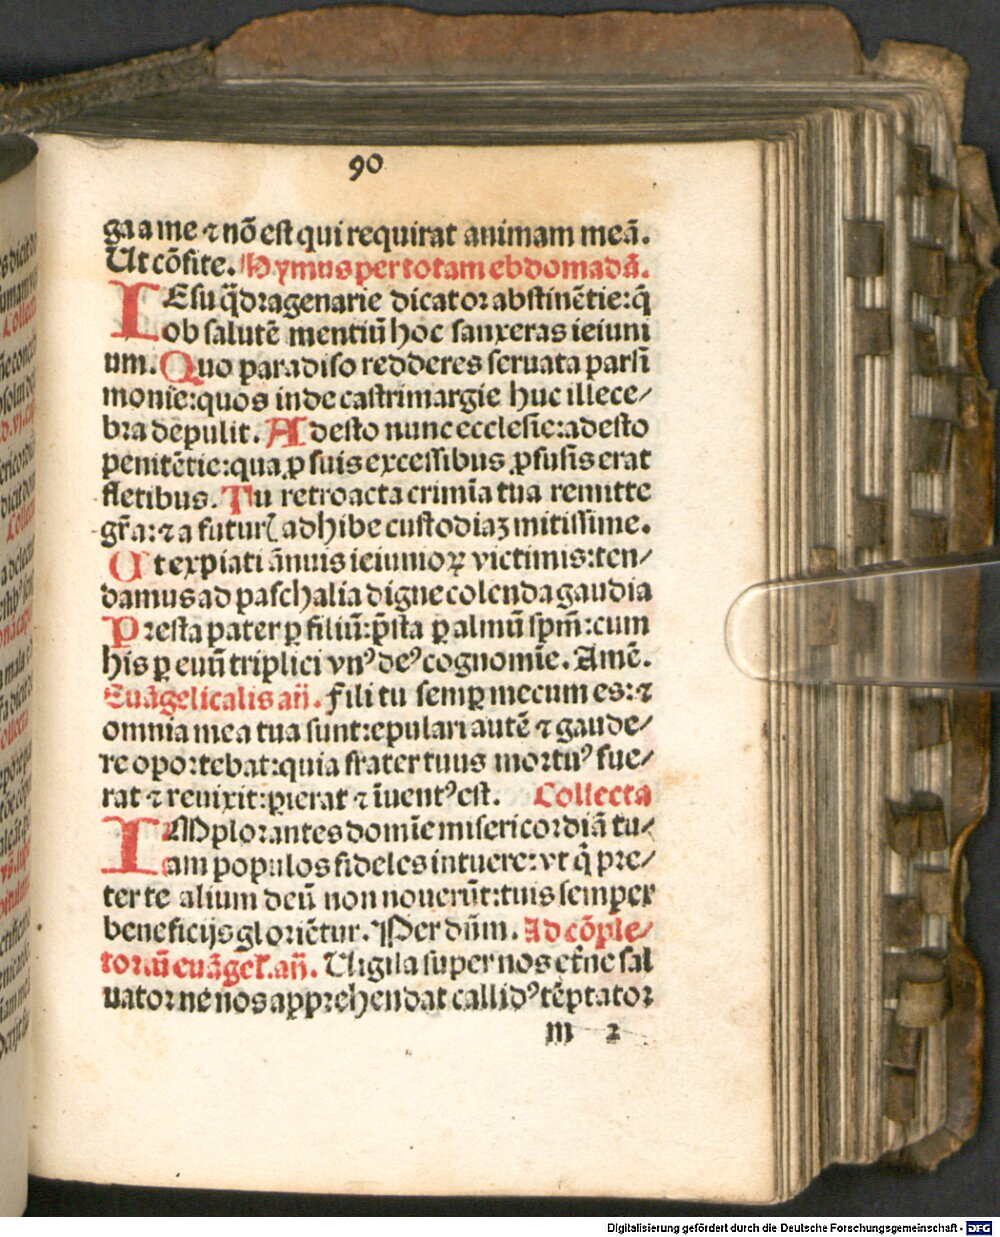 90
ga a me ⁊ nō est qui requirat animam meā.
Ut cōfite. Hymus per totam ebdomadā.
IEsu q̄dragenarie dicator abstinētie: q̄
ob salutē mentiū hoc sanxeras ieiuni
um. Quo paradiso redderes seruata parsi
monie: quos inde castrimargie huc illece/
bra depulit. Adesto nunc ecclesie: adesto
penitētie: qua ꝓ suis excessibus ꝓfusis erat
fletibus. Tu retroacta crimīa tua remitte
gr̄a: ⁊ a futuꝝ adhibe custodiaꝫ mitissime.
Ut expiati ānuis ieiunioꝝ victimis: ten/
damus ad paschalia digne colenda gaudia
Presta pater ꝑ filiū: p̄sta ꝑ almū sp̄m: cum
his ꝑ euū triplici vnꝰ deꝰ cognomīe. Amē.
Euāgelicalis an̄. Fili tu semꝑ mecum es: ⁊
omnia mea tua sunt: epulari autē ⁊ gaude/
re oportebat: quia frater tuus mortuꝰ fue/
rat ⁊ reuixit: ꝑierat ⁊ īuentꝰ est. Collecta
IMplorantes domīe misericordiā tu/
am populos fideles intuere: vt q̄ pre/
ter te alium deū non nouerūt: tuis semper
beneficijs gloriētur. Per dūm. Ad cōple/
toriū euāgeł. an̄. Uigila super nos et̄ne sal
uator ne nos apprehendat callidꝰ tēptator
m 2
Digitalisierung gefördert durch die Deutsche Forschungsgemeinschaft - DFG